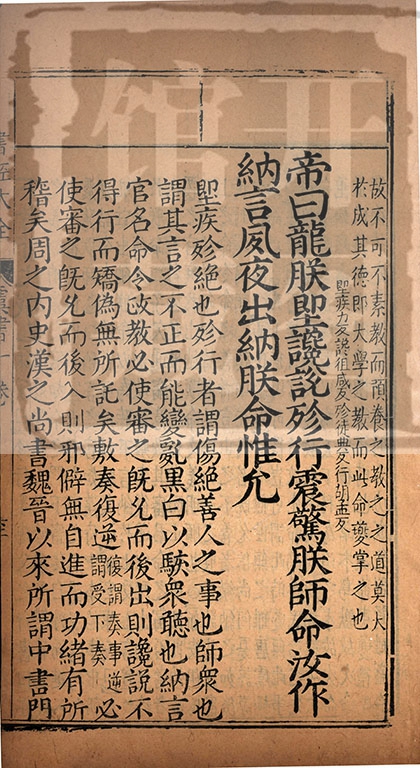 故不可不素教而預養之教之之道莫大
於成其德即大學之教而此命夔掌之也
帝曰龍朕堲讒說殄行震驚朕師命汝作
堲疾力反說徂感反殄徒典反行胡孟反
納言夙夜出納朕命惟允
堲疾殄絶也殄行者謂傷絶善人之事也師衆也
謂其言之不正而能變亂黑白以駭衆聽也納言
官名命令政教必使審之旣允而後出則讒說不
得行而矯偽無所託矣敷奏復逆復謂奏事逆謂受下奏必
使審之旣允而後入則邪僻無自進而功緒有所
稽矣周之内史漢之尚書魏晉以來所謂中書門
書經大全
虞書一卷